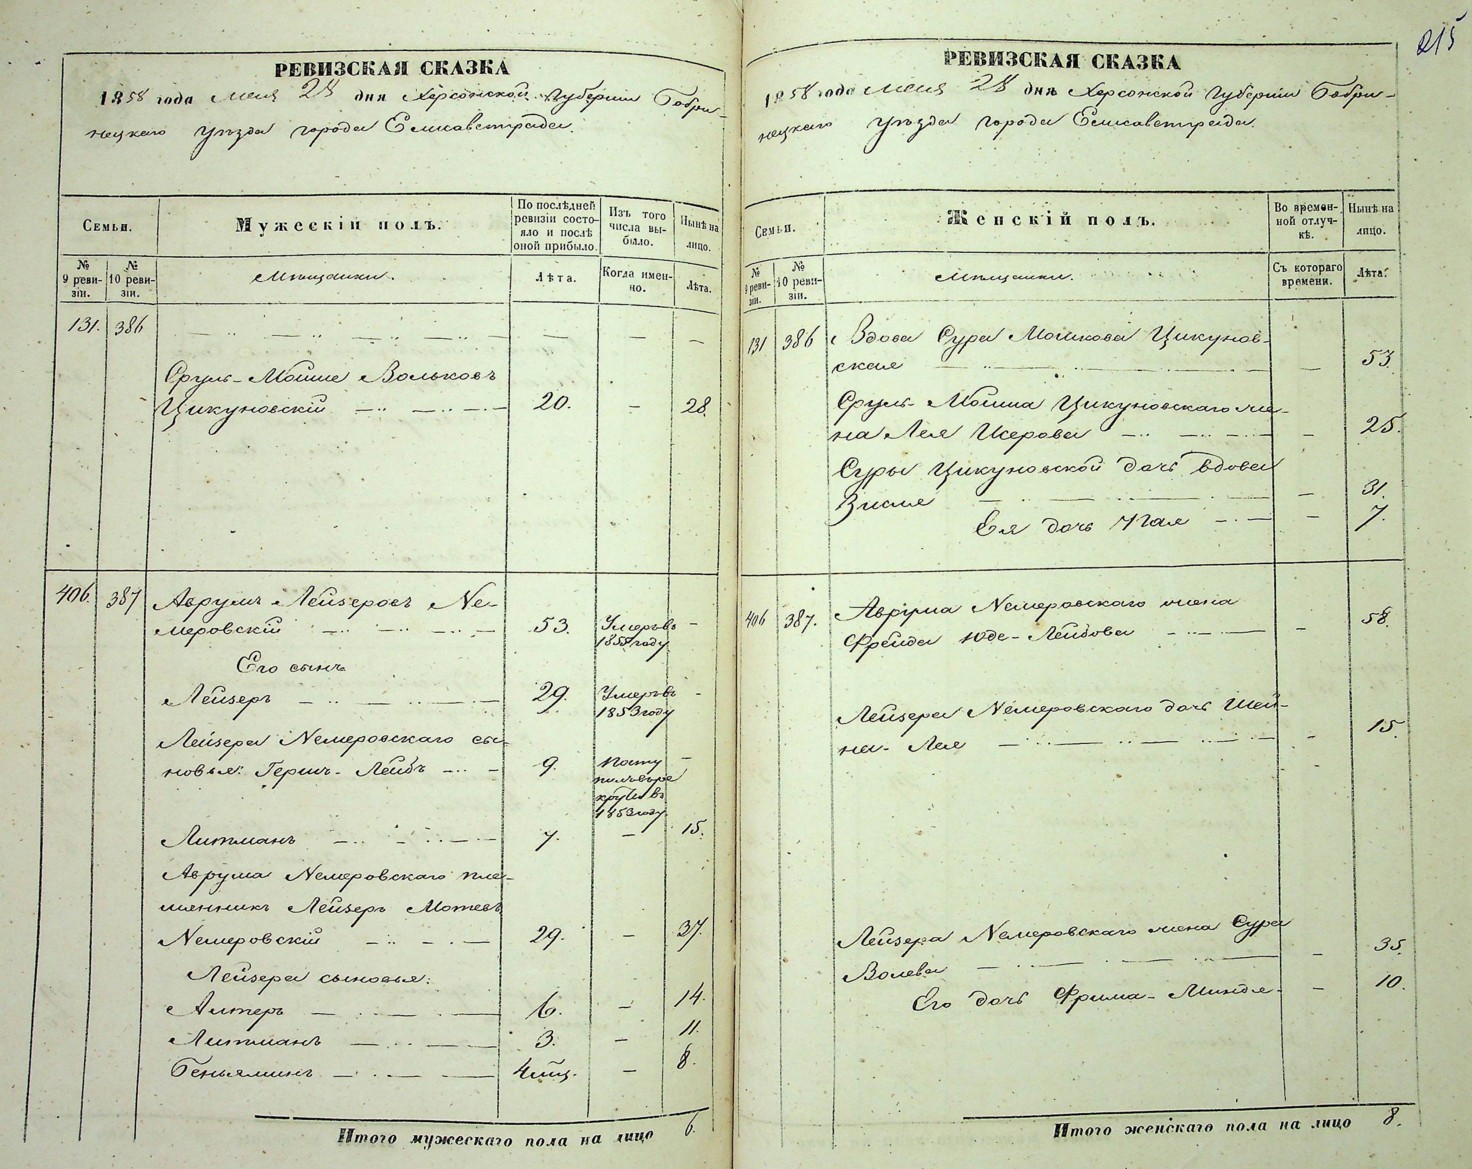 РЕВИЗСКАЯ СКАЗКА
1858 года мая 28 дня Херсонской Губернии Бобри-
нецкаго уѣзда города Елисаветграда.
Семьи.
Мужескій полъ.
По послѣдней
ревизіи состо-
яло и послѣ
оной прибыло.
Изъ того
числа вы-
было.
Нынѣ на
лицо.
№
9 реви-
зіи.
№
10 реви-
зіи.
Мѣщанки.
Лѣта.
Когда имен-
но.
Лѣта.
131. 386
Сруль-Мойше Вольковъ
Цикуновскій 20. 28.
406. 387 Аврумъ Лейзеровъ Не-
меровскій 53. Умеръ въ
185 году
Его сынъ
Лейзеръ 29. Умеръ въ
1853 году
Лейзера Немеровскаго сы-
новья: Гершъ-Лейбъ 9. Посту
пилъ въ ре
круты въ
1853 году.
Литманъ 7. 15.
Аврума Немеровскаго пле-
мянникъ Лейзеръ Мотевъ
Немеровскій 29. 37.
Лейзера сыновья:
Алтеръ 6. 14.
Литманъ 3. 11.
Беньяминъ 8.
Итого мужескаго пола на лицо 6.
215
РЕВИЗСКАЯ СКАЗКА
1858 года мая 28 дня Херсонской Губерніи Бобри-
нецкаго уѣзда города Елисаветграда.
Семьи.
Женскій полъ.
Во времен-
ной отлуч-
кѣ.
Нынѣ на
лицо.
№
9 реви-
зіи.
№
10 реви-
зіи.
Мѣщанки.
Съ котораго
времени.
Лѣта.
131 386 Вдова Сура Мошкова Цикунов-
ская 53.
Сруль-Мойша Цикуновскаго же-
на Лея Исерова 25.
Суры Цикуновской дочь вдова
Зисля 31.
Ея дочь Хая 7.
406 387. Аврума Немеровскаго жена
Фрейда Юде-Лейбова 58.
Лейзера Немеровскаго дочь Шей-
на-Лея 15.
Лейзера Немеровскаго жена Сура
Волева 35.
Его дочь Фрима-Миндя 10.
Итого женскаго пола на лицо 8.